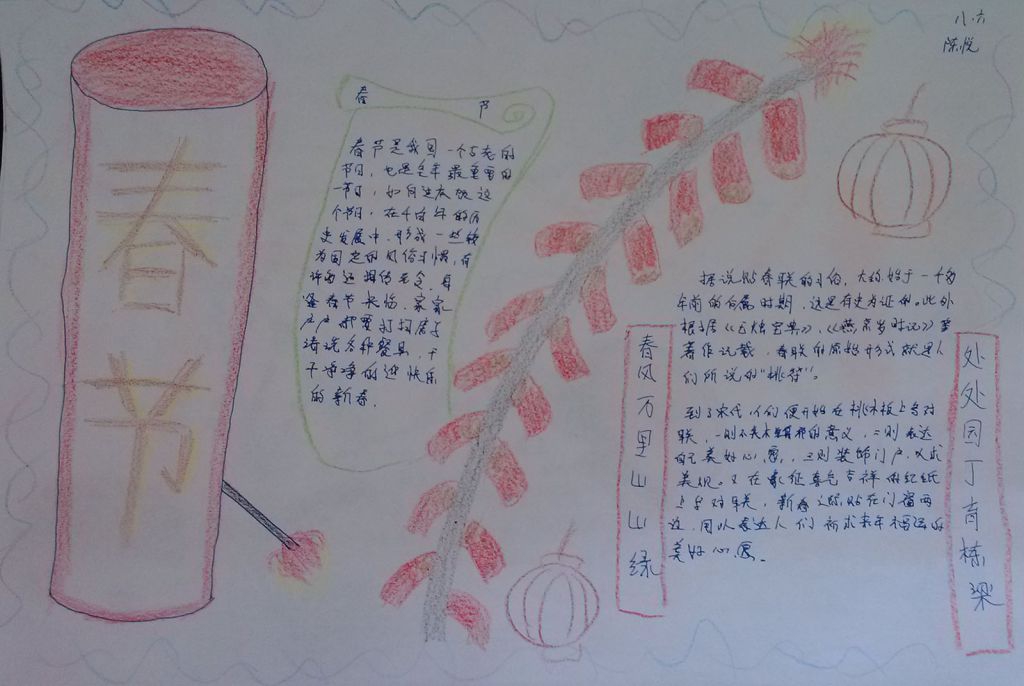 八.六
陈悦
春节
春 节
春节是我国一个古老的
节日,也是全年最重要的
一节日,如何过庆祝这
个节日,在千百年的历
史发展中,形成一些较
为固定的风俗习惯,有
许多还相传至今,每
逢春节来临,家家
户户都要打扫房子
清洗各种餐具,干
干净净的迎快乐
的新春.
据说贴春联的习俗,大约始于一千多
年前的后蜀时期,这是有史为证的。此外
根据《玉烛宝典》,《燕京岁时记》等
著作记载,春联的原始形式就是人
们所说的“桃符”。
到了宋代人们便开始在桃木板上写对
联,一则不失桃木的意义,二则表达
自己美好心愿,三则装饰门户,以求
美观。又在象征喜气吉祥的红纸
上写对联,新春之际贴在门窗两
边,用以表达人们祈求来年福运的
美好心愿.
春风万里山山绿
处处园丁育栋梁